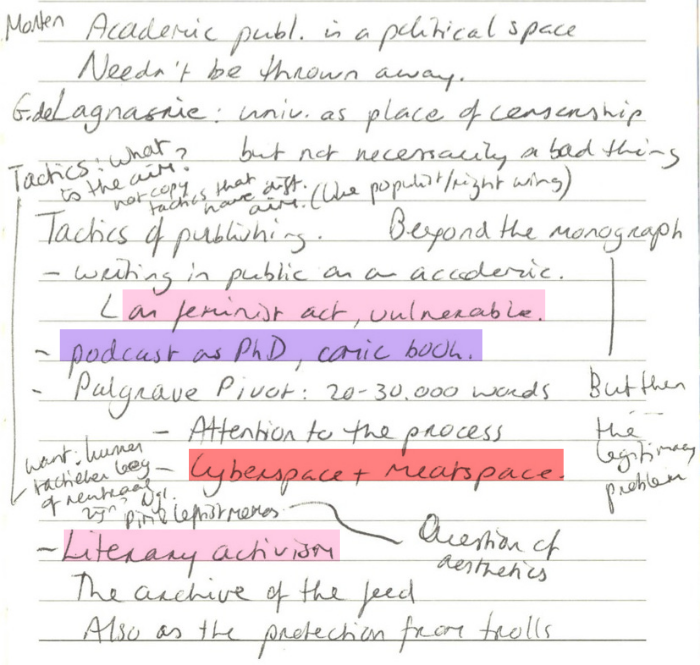 Morten Academic publ. is a political space
Needn't be thrown away.
G. de Lagnasnie: univ. as place of censorship
but not necessarily a bad thing
Tactics: what?
is the aim?
not copy
tactics that
have dift.
aim. (like populist/right wing)
Tactics of publishing. Beyond the monograph
- writing in public as an academic.
L as feminist act, vulnerable.
- podcast as PhD, comic book.
- Palgrave Pivot: 20-30.000 words
But then
the
legitimacy
problem
- Attention to the process
- Cyberspace + meatspace.
want: humor
of
zijn
leftist memes
Question of
aesthetics
- Literary activism
The archive of the feed
Also as the protection from trolls